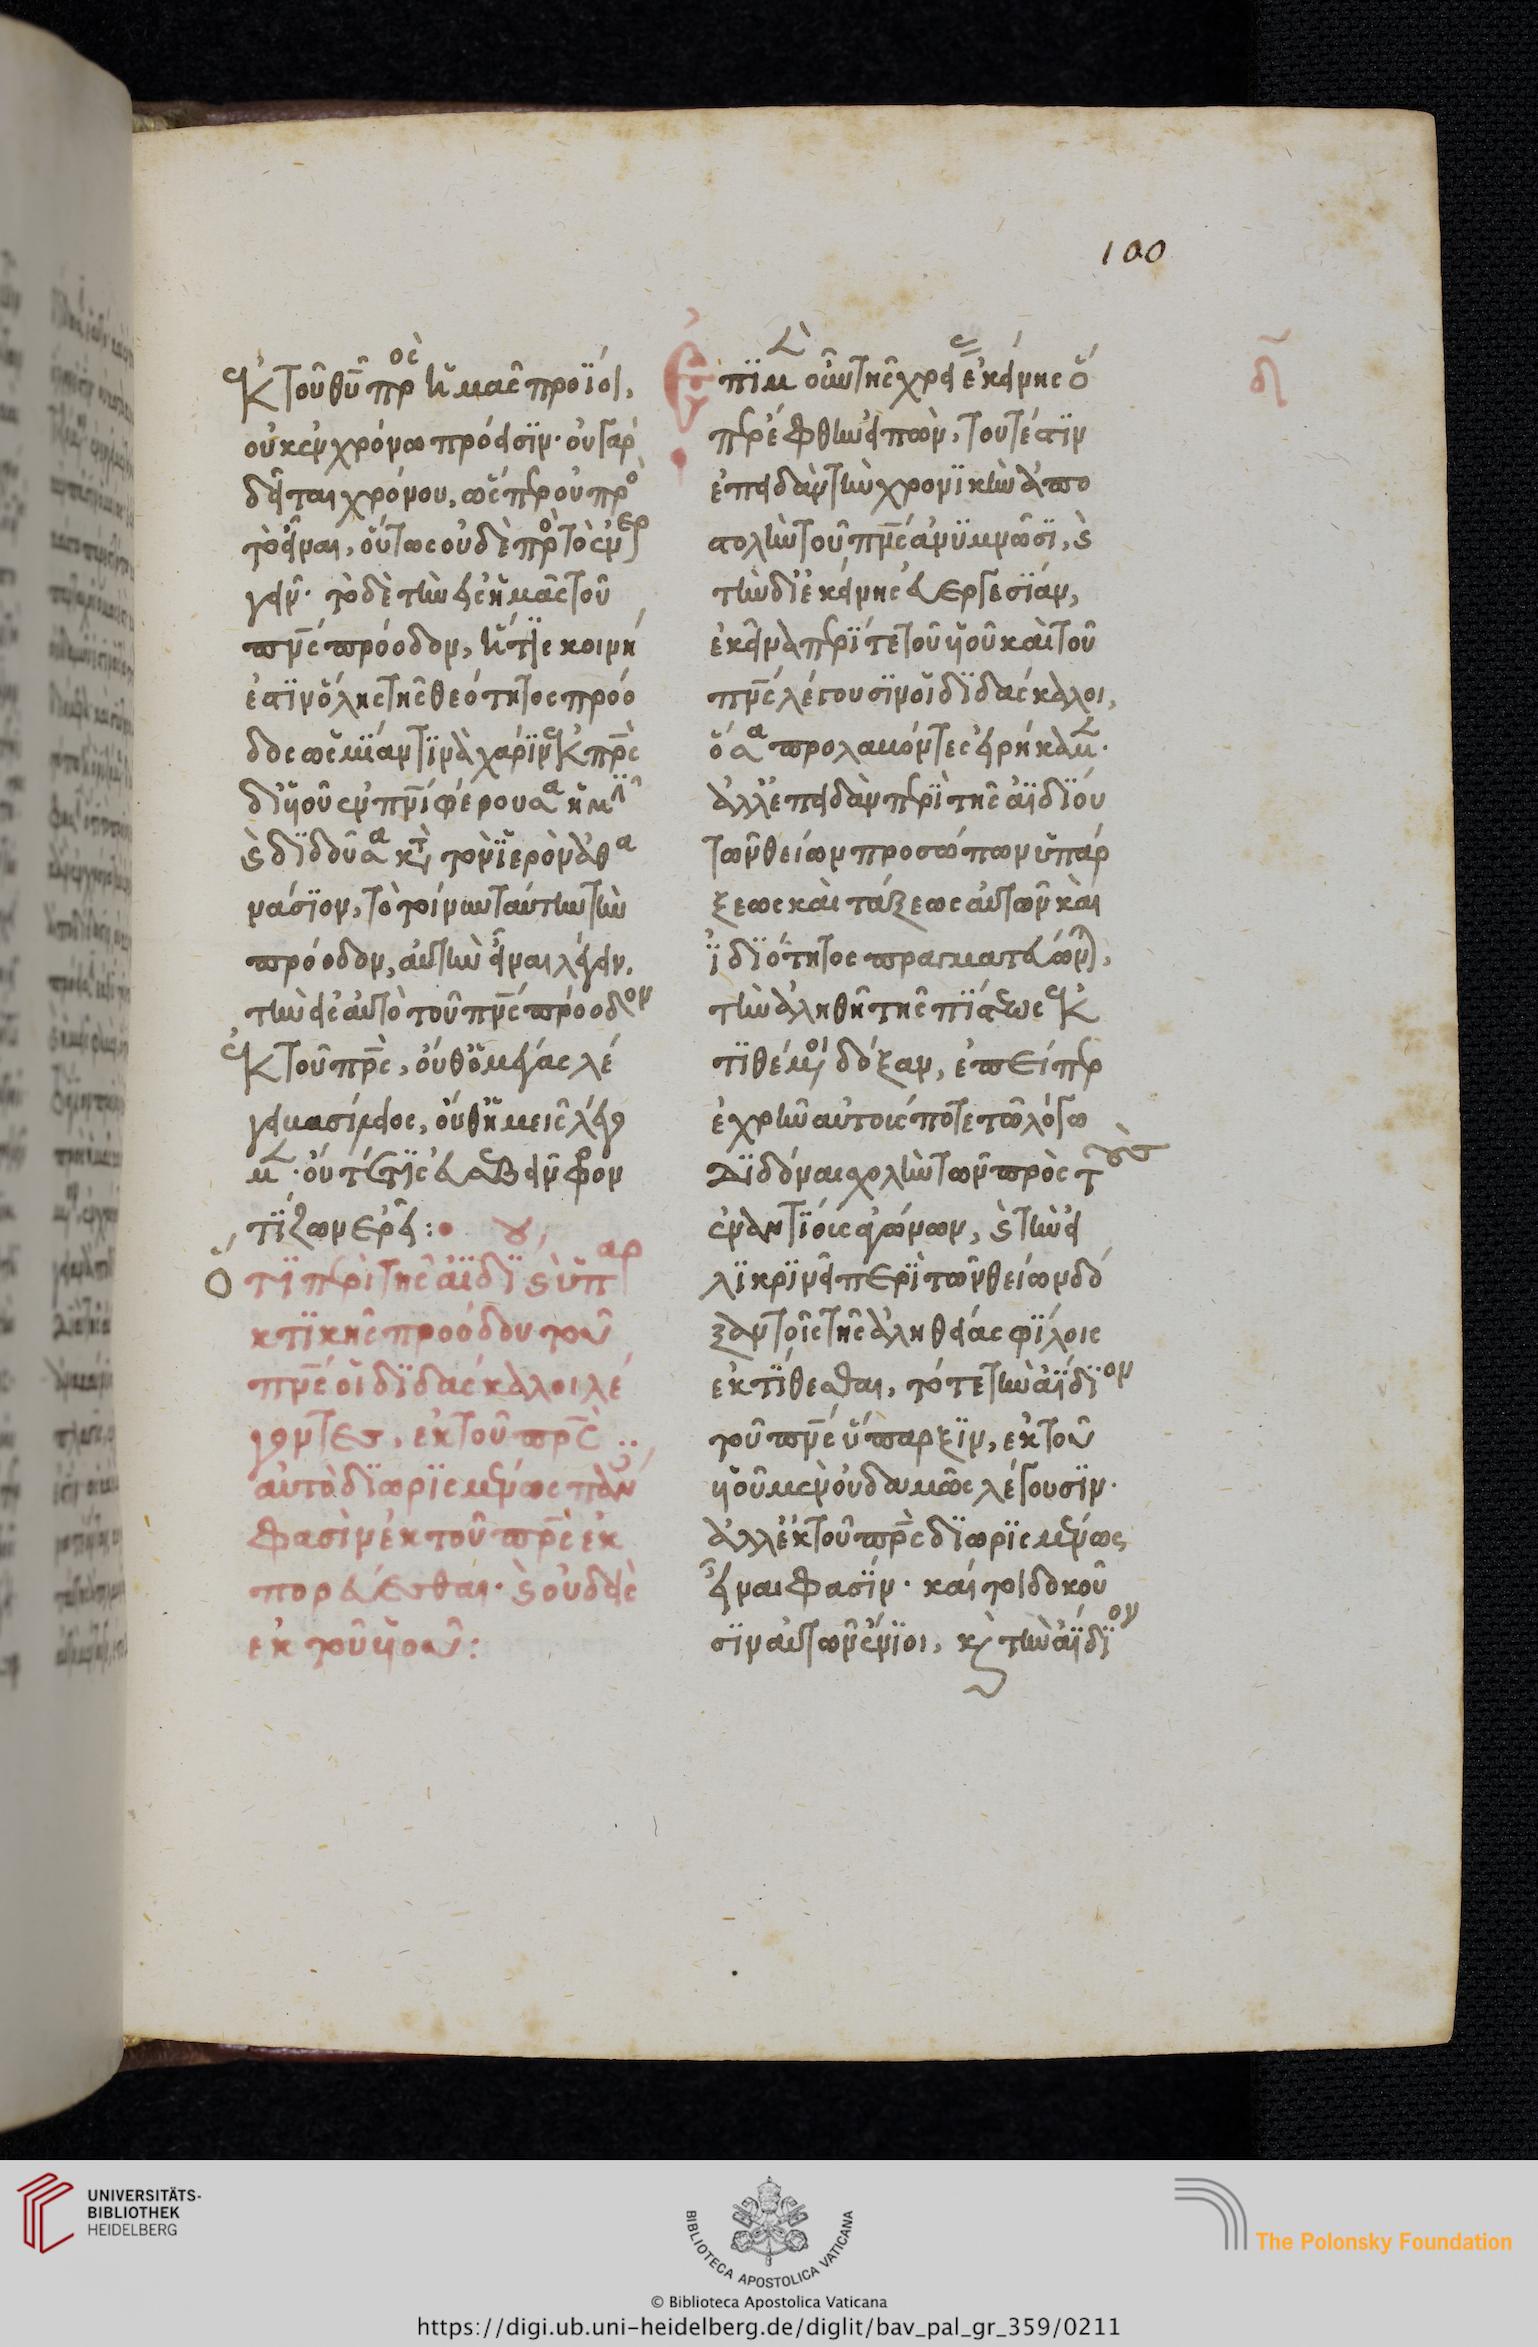 100
ἐκ τοῦ θυ πρὸς ἡμᾶς πρόϊσι,
οὐκ ἐν χρόνω πρόεισιν· οὐ γὰρ
δεῖται χρόνου, ὥσπερ οὐ πρὸ
τὸ εἶναι, οὕτως οὐδὲ πρὸ τὸ ἐνερ
γεῖν· τὸ δὲ τὴν εἰς ἡμᾶς τοῦ
πνς πρόοδον, ἥτις κοινή
ἐστιν ὅλης τῆς θεότητος πρόο
δος ὡς μίαν τινὰ χάριν ἐκ πρς
δι' υἱοῦ ἐν πνι φέρουσα ἡμῖν
καὶ διδοῦσα κατὰ τὸν ἱερὸν ἀθα
νάσιον, τὸ τοίνυν ταύτην τὴν
πρόοδον, αὐτὴν εἶναι λέγειν,
τὴν εἰς αὐτὸ τοῦ πνς πρόοδον
ἐκ τοῦ πρς, οὔθ' ὁ μέγας λέ
γει μάξιμος, οὔθ' ἡμεῖς λέγο
μεν· οὔτέ τις εὐσεβεῖν φρον
τίζων ἐρεῖ:
Ὅτι περὶ τῆς ἀϊδίου καὶ ὑπαρ
κτικῆς προόδου τοῦ
πνς οἱ διδάσκαλοι λέ
γοντες, ἐκ τοῦ πρς
αὐτὸ διωρισμένως
φασὶν ἐκ τοῦ πρς ἐκ
πορεύεσθαι· καὶ οὐδεὶς
ἐκ τοῦ υἱοῦ:
Ἐπὶ μὲν οὖν τῆς χρείας ἐκείνης ὅ
περ ἔφθην εἰπών, τουτέστιν
ἐπειδὰν τὴν χρονικὴν ἀπο
στολὴν τοῦ πνς ἀνυμνῶσι, καὶ
τὴν δι' ἐκείνης εὐεργεσίαν,
ἐκεῖνα περί τε τοῦ υἱοῦ καὶ τοῦ
πνς λέγουσιν οἱ διδάσκαλοι,
ὅσα προλαβόντες εἰρήκαμεν·
ἀλλ' ἐπειδὰν περὶ τῆς ἀϊδίου
τῶν θείων προσώπων ὑπάρ
ξεως καὶ τάξεως αὐτῶν καὶ
ἰδιότητος πραγματεύωνται,
τὴν ἀληθῆ τῆς πίστεως ἐκ
τιθέμενοι δόξαν, ἐπείπερ
ἐχρῆν αὐτοῖς ποτε τῶ λόγω
διδόναι σχολὴν τῶν πρὸς τοὺς
ἐναντίους ἀγώνων, καὶ τὴν εἰ
λικρινῆ περὶ τῶν θείων δό
ξαν τοῖς τῆς ἀληθείας φίλοις
ἐκτίθεσθαι, τότε τὴν ἀΐδιον
τοῦ πνς ὕπαρξιν, ἐκ τοῦ
υἱοῦ μὲν οὐδαμῶς λέγουσιν·
ἀλλ' ἐκ τοῦ πρς διωρισμένως
εἶναι φασίν· καίτοι δοκοῦ
σιν αὐτῶν ἔνιοι, καὶ τὴν ἀΐδιον
UNIVERSITÄTS-
BIBLIOTHEK
HEIDELBERG
BIBLIOTECA APOSTOLICA VATICANA
The Polonsky Foundation
© Biblioteca Apostolica Vaticana
https://digi.ub.uni-heidelberg.de/diglit/bav_pal_gr_359/0211